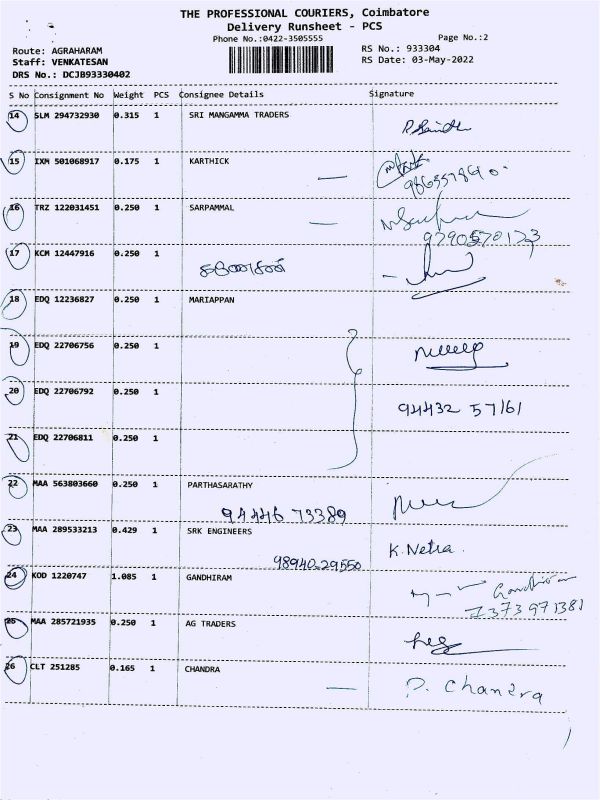 THE PROFESSIONAL COURIERS, Coimbatore
Delivery Runsheet - PCS
Phone No.:0422-3505555 Page No.:2
Route: AGRAHARAM RS No.: 933304
Staff: VENKATESAN RS Date: 03-May-2022
DRS No.: DCJB93330402
S No Consignment No Weight PCS Consignee Details Signature
14 SLM 294732930 0.315 1 SRI MANGAMMA TRADERS
15 IXM 501068917 0.175 1 KARTHICK
16 TRZ 122031451 0.250 1 SARPAMMAL
9790570173
17 KCM 12447916 0.250 1
18 EDQ 12236827 0.250 1 MARIAPPAN
19 EDQ 22706756 0.250 1
20 EDQ 22706792 0.250 1
94432 57161
21 EDQ 22706811 0.250 1
22 MAA 563803660 0.250 1 PARTHASARATHY
94446 73389
23 MAA 289533213 0.429 1 SRK ENGINEERS
K. Netra.
98940 29550
24 KOD 1220747 1.085 1 GANDHIRAM
7373971381
25 MAA 285721935 0.250 1 AG TRADERS
26 CLT 251285 0.165 1 CHANDRA
P. Chandra